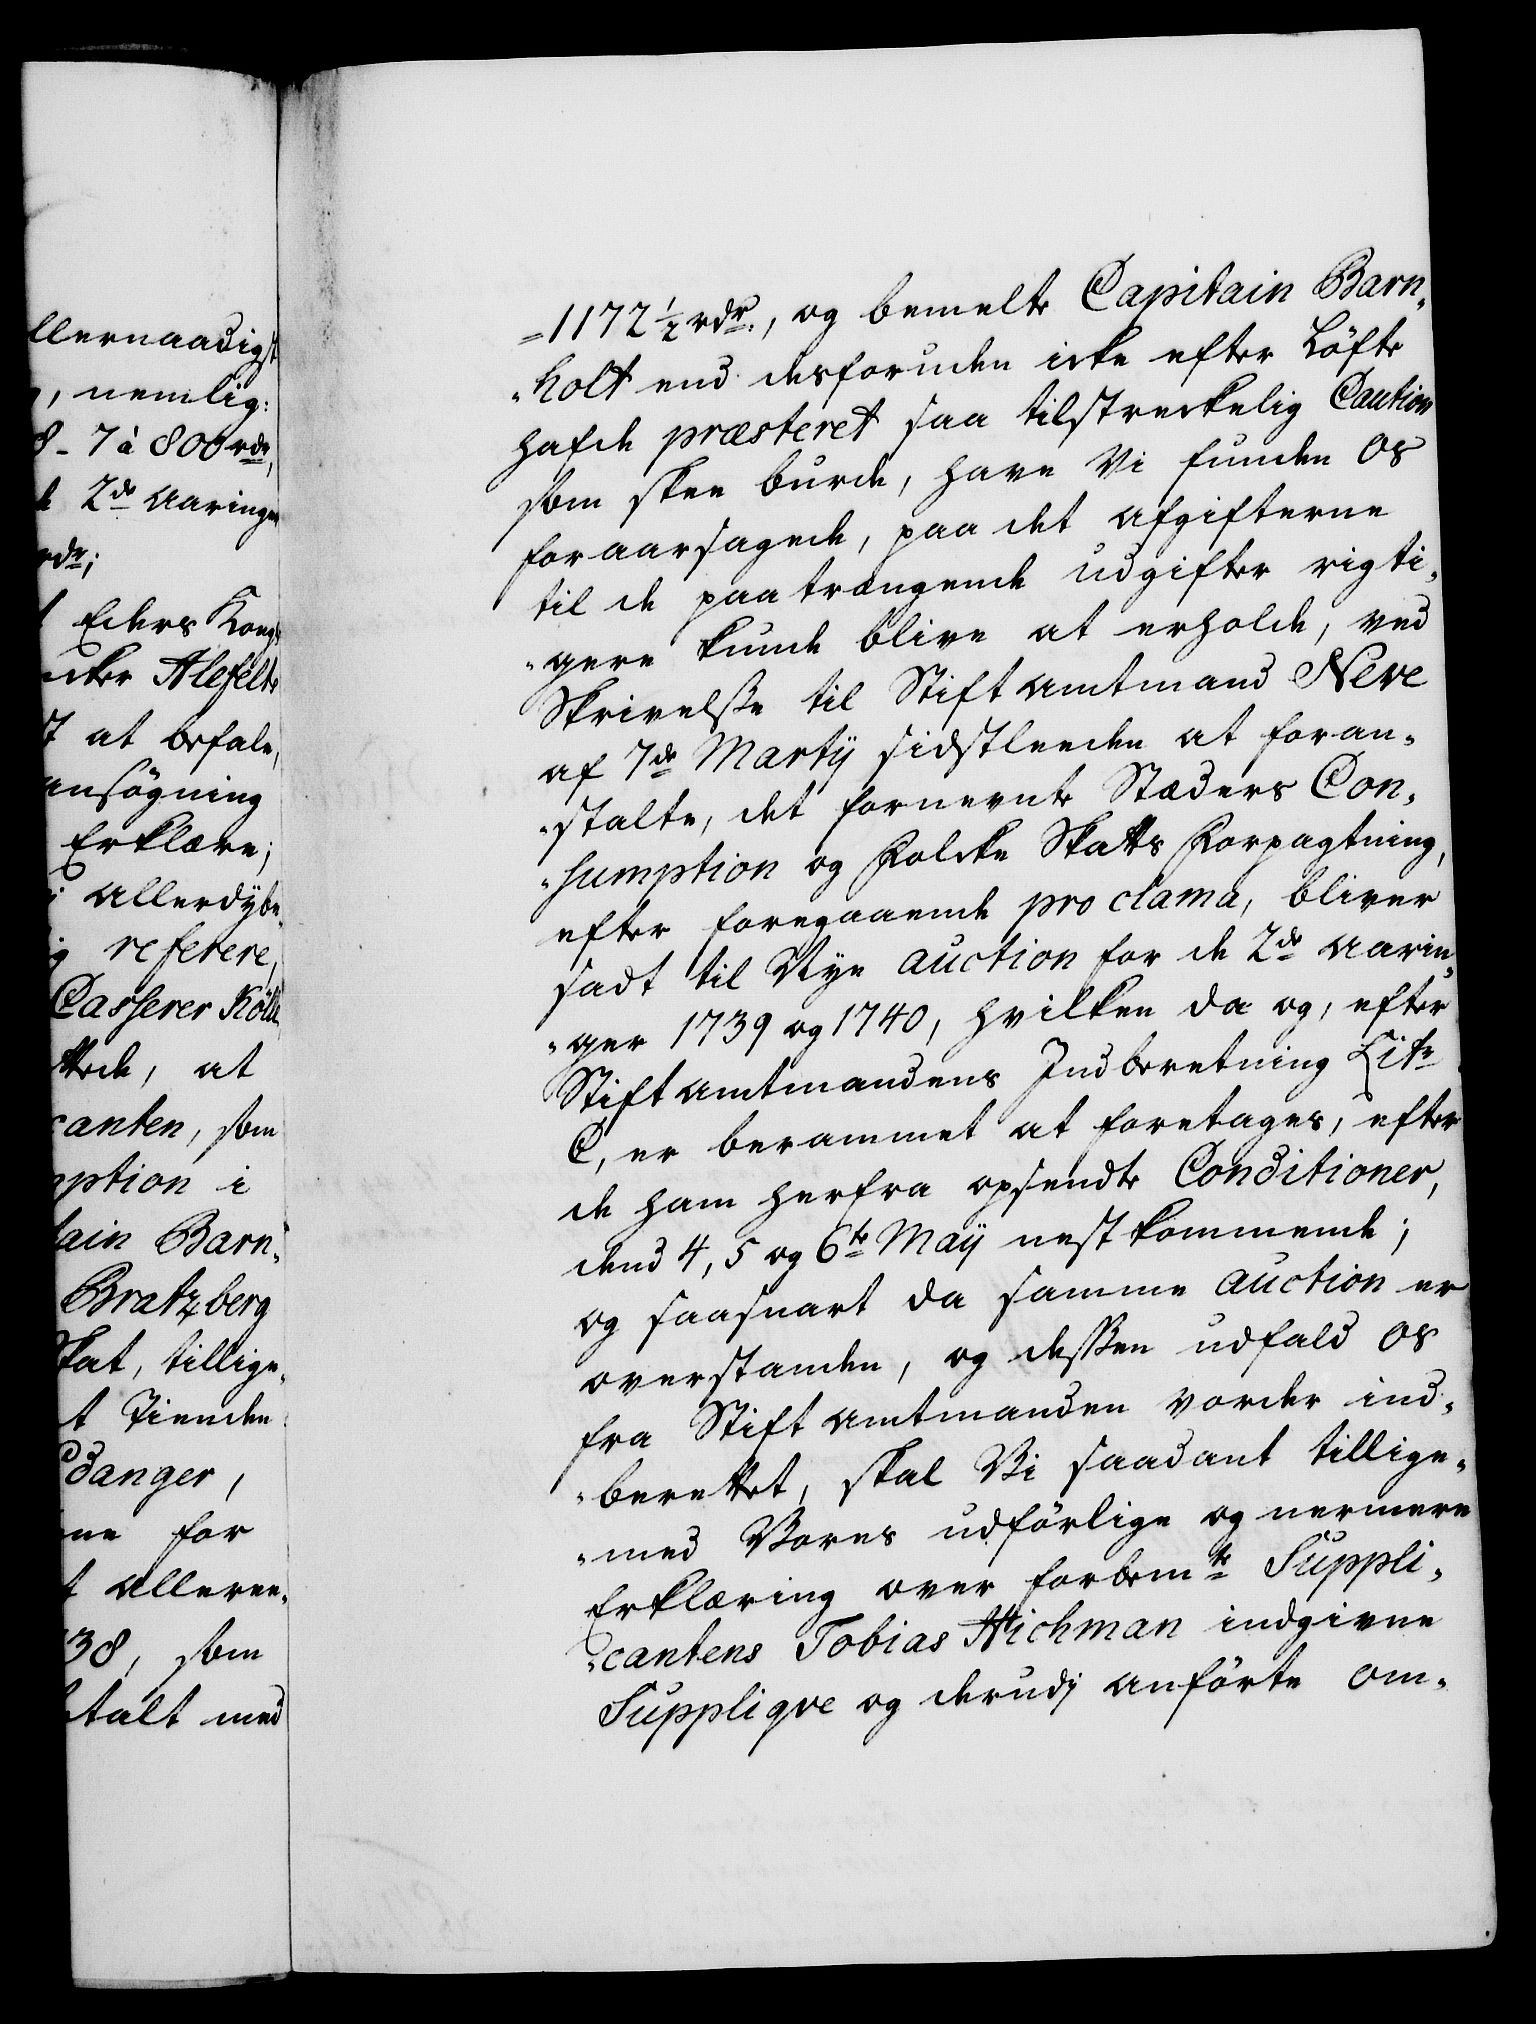 llernaadigst
, nemlig:
8 - 7 à 800 rdr,
2de Aaringer
rdr;
Eders Kong
Alefeldt
at befale,
ansøgning
Erklære;
allerdybe
referere,
Casserer
ttede, at
canten, som
ption i
tain Barn-
Bratzberg
Skat, tillige-
t Tienden
danger,
ne for
t alleree-
38, som
talt med
=1172½ rdr., og bemelte Capitain Barn-
-holt end desforuden icke efter Løfte
hafde præsteret saa tilstreckelig Caution
som skee burde, have Vi funden os
foraarsagede, paa det afgifterne
til de paatrængende udgifter rigti-
-gere kunde blive at erholde, ved
Skrivelsse til Stiftamtmand Neve
af 7de Martij sidstleeden at foran-
-stalte, det fornevnte Stæders Con-
-sumption og Folcke Skatts Forpagtning,
efter foregaaende proclama, bliver
sadt til Nye auction for de 2de Aarin-
-ger 1739 og 1740, hvilken da og, efter
Stiftamtmandens Indberetning Litr
C, er berammet at foretages, efter
de ham herfra opsendte Conditioner,
dend 4, 5 og 6te Maij nestkommende;
og saasnart da samme auction er
overstanden, og dessen udfald os
fra Stiftamtmanden vorder ind-
-berettet, skal Vi saadant tillige-
-med Vores udførlige og nermere
Erklæring over forbemte Suppli-
-cantens Tobias Hichman indgivne
Supplique og derudj anførte om-